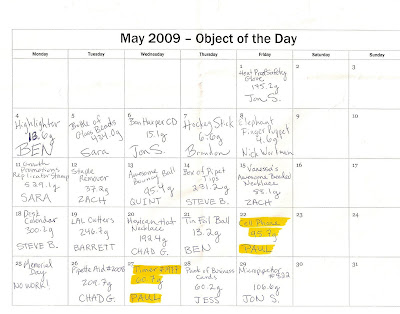 May 2009 – Object of the Day
Monday Tuesday Wednesday Thursday Friday Saturday Sunday
1 2 3
Heat Proof Safety
Glove
145.2g
Jon S.
4 5 6 7 8 9 10
Highlighter
13.6g
BEN
Bottle of
Glass Beads
434.0g
Sara
Ben Harper CD
15.1g
Jon S.
Hockey Stick
6.6g
Brandon
Elephant
Finger Puppet
4.6g
Nick Wortman
11 12 13 14 15 16 17
Growth
Promotions
Replicator Stamp
529.1g
SARA
Staple
Remover
37.2g
ZACH
Awesome Ball
95.4g
QUINT
Box of Pipet
Tips
231.2g
STEVE B.
Vanessa's
Awesome Beaded
Necklace
58.1g
ZACH
18 19 20 21 22 23 24
Desk
Calendar
300.2g
STEVE B.
LAL Cutters
246.3g
BARRETT
Hat
Necklace
192.4g
CHAD G.
Tin Foil Ball
13.2g
BEN
Cell Phone
95.7g
PAUL
25 26 27 28 29 30 31
Memorial
Day
NO WORK!
Pipette Aid #2008
209.7g
CHAD G.
Timer #1977
60.7g
PAUL
Pack of Business
Cards
60.2g
JESS
Micropipettor
106.6g
JON S.